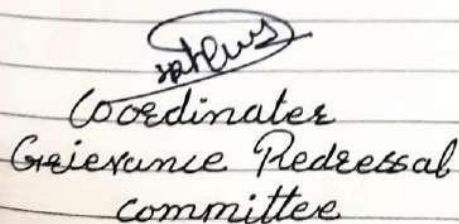 Coordinater
Grievance Redressal
committee